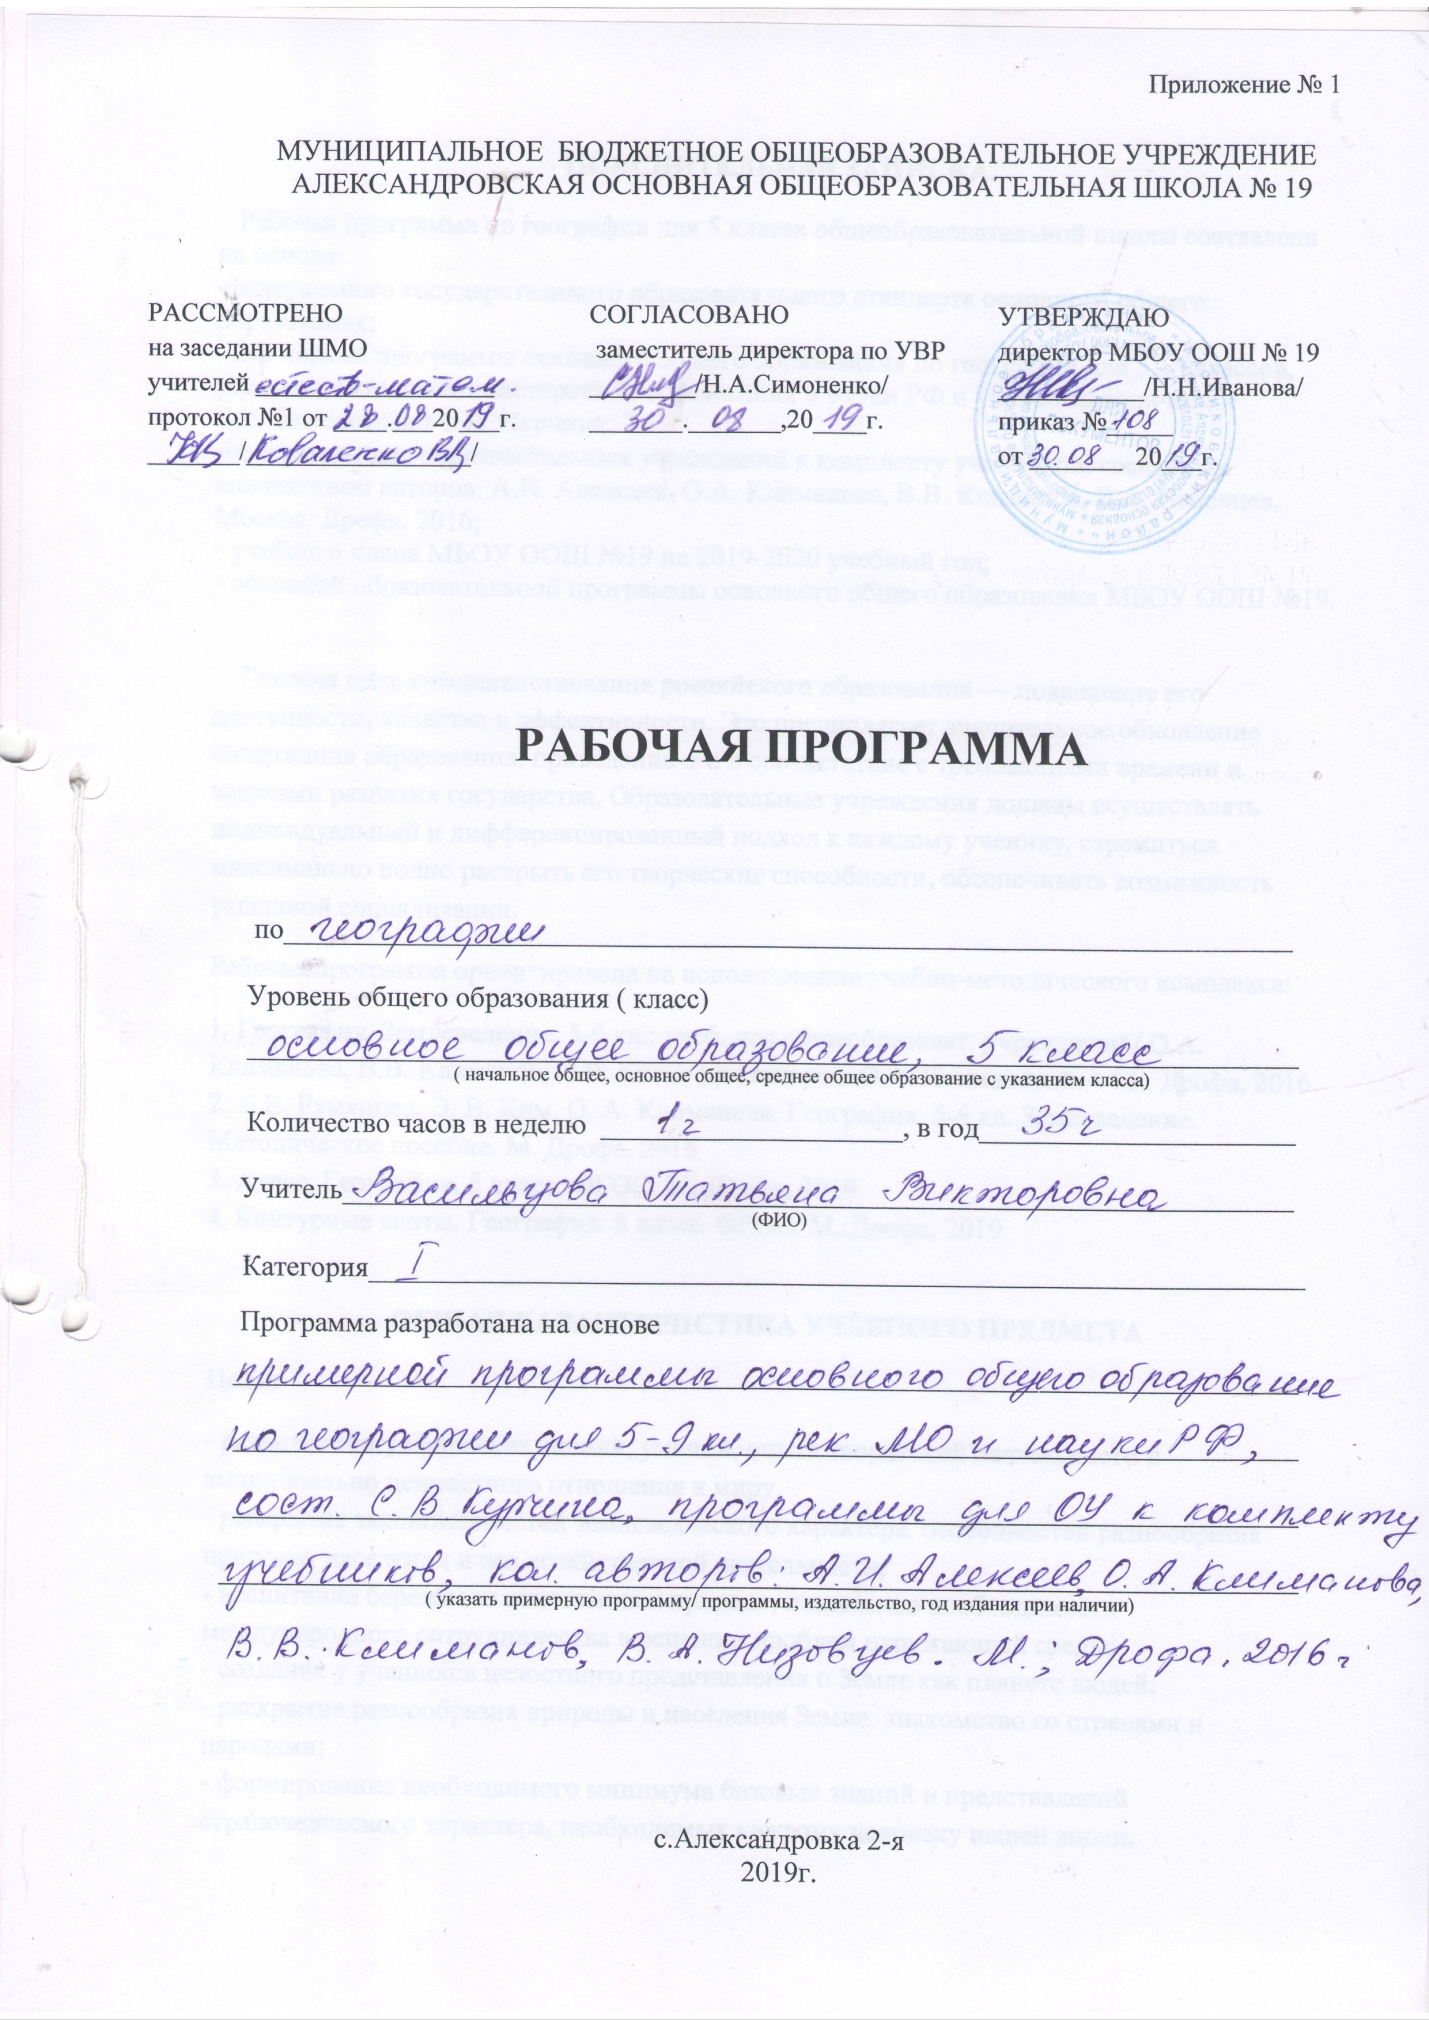 Приложение № 1
МУНИЦИПАЛЬНОЕ БЮДЖЕТНОЕ ОБЩЕОБРАЗОВАТЕЛЬНОЕ УЧРЕЖДЕНИЕ
АЛЕКСАНДРОВСКАЯ ОСНОВНАЯ ОБЩЕОБРАЗОВАТЕЛЬНАЯ ШКОЛА № 19
РАССМОТРЕНО
на заседании ШМО
учителей естеств-матем.
протокол №1 от 28.08 2019г.
/Коваленко ВД/
СОГЛАСОВАНО
заместитель директора по УВР
/Н.А.Симоненко/
30. 08 ,2019г.
УТВЕРЖДАЮ
директор МБОУ ООШ № 19
/Н.Н.Иванова/
приказ № 108
от 30 08 2019г.
РАБОЧАЯ ПРОГРАММА
по географии
Уровень общего образования ( класс)
основное общее образование, 5 класс
( начальное общее, основное общее, среднее общее образование с указанием класса)
Количество часов в неделю 1ч , в год 35ч
Учитель Васильцова Татьяна Викторовна
(ФИО)
Категория I
Программа разработана на основе
примерной программы основного общего образование
по географии для 5-9 кл., рек МО и науки РФ,
сост. С. В Курчина, программы для ОУ к комплекту
учебников, кол. авторов: А.И. Алексеев, О.А. Климанова,
( указать примерную программу/ программы, издательство, год издания при наличии)
В.В. Климанов, В.А. Низовцев. М.; Дрофа, 2016 г
с.Александровка 2-я
2019г.